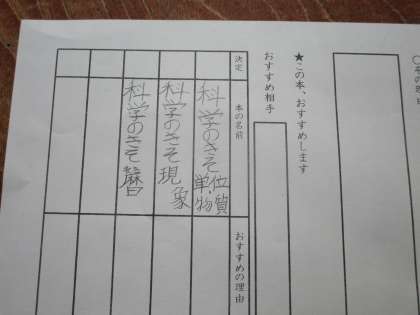 ★この本、おすすめします
おすすめ相手
決定
本の名前
おすすめの理由
科学のきそ
単位・物質
科学のきそ現象
科学のきそ